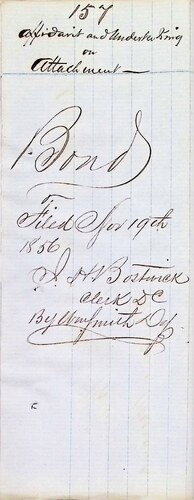 157
Affidavit and Undertaking
on
Attachment
Bond
Filed Nov 19th
1856
H Bostwick
Clerk DC
By Wm Smith Dy